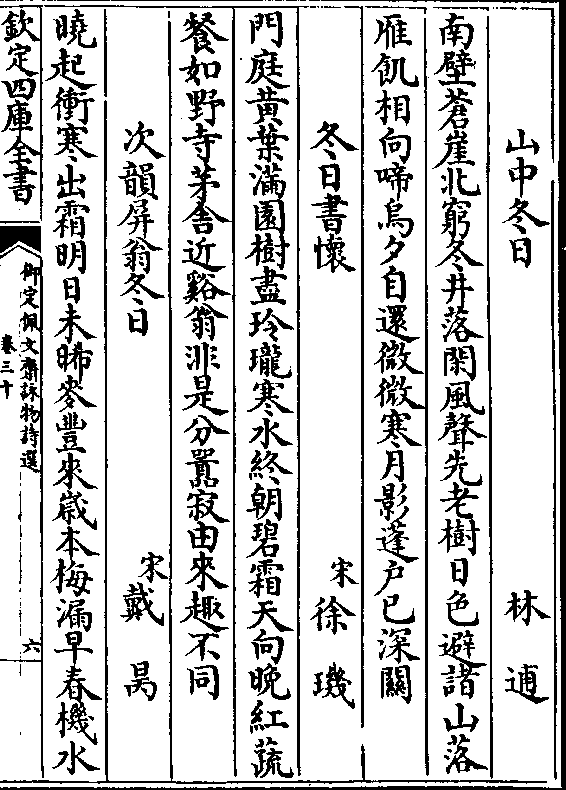 山中冬日 林逋
南壁蒼崖北窮冬井落閑風聲先老樹日色避諸山落
雁飢相向啼烏夕自還微微寒月影蓬戸已深關
冬日書懷 宋徐璣
門庭黃葉滿園樹盡玲瓏寒水終朝碧霜天向晚紅蔬
餐如野寺茅舍近谿翁非是分囂寂由來趣不同
次韻屏翁冬日 宋戴昺
曉起衝寒出霜明日未晞麥豐來嵗本梅漏早春機水
欽定四庫全書
御定佩文齋詠物詩選
卷三十
六